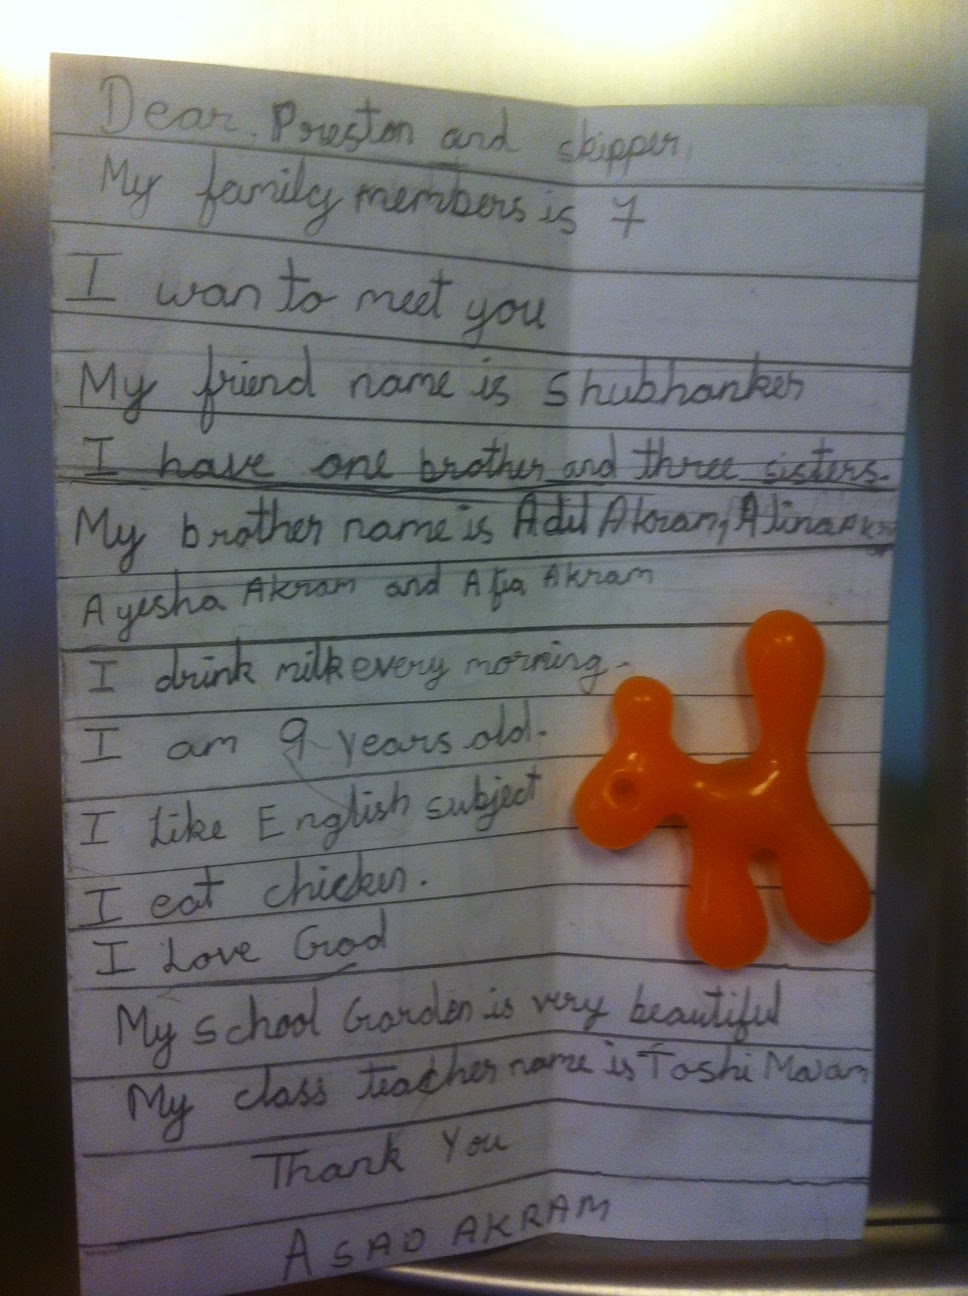 Dear, Preston and skipper,
My family members is 7
I wan to meet you
My friend name is Shubhanker
I have one brother and three sisters.
My brother name is Adil Akram, Alina Akram
Ayesha Akram and Afia Akram
I drink milk every morning.
I am 9 years old.
I Like English subject
I eat chicken.
I Love God
My school Garden is very beautiful
My class teacher name is Toshi Ma'am
Thank You
ASAD AKRAM